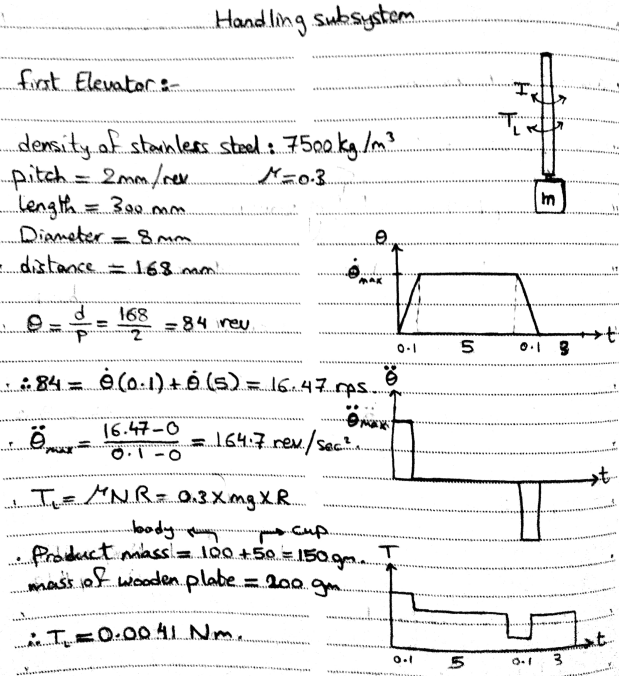 Handling subsystem
first Elevator :-
density of stainless steel : 7500 kg/m³
pitch = 2mm/rev μ=0.3
Length = 300 mm
Diameter = 8mm
distance = 168 mm
θ = d/p = 168/2 = 84 rev
∴ 84 = θ̇(0.1) + θ̇(5) = 16.47 rps.
θ̈max = (16.47-0)/(0.1-0) = 164.7 rev/sec².
T_L = μNR = 0.3 X mg X R
body ← → cup
. Product mass = 100 + 50 = 150 gm.
mass of wooden plabe = 200 gm
∴ T_L = 0.0041 Nm.
I
T_L
m
θ
θ̇max
0.1 5 0.1 3 t
θ̈
θ̈max
t
T
0.1 5 0.1 3 t